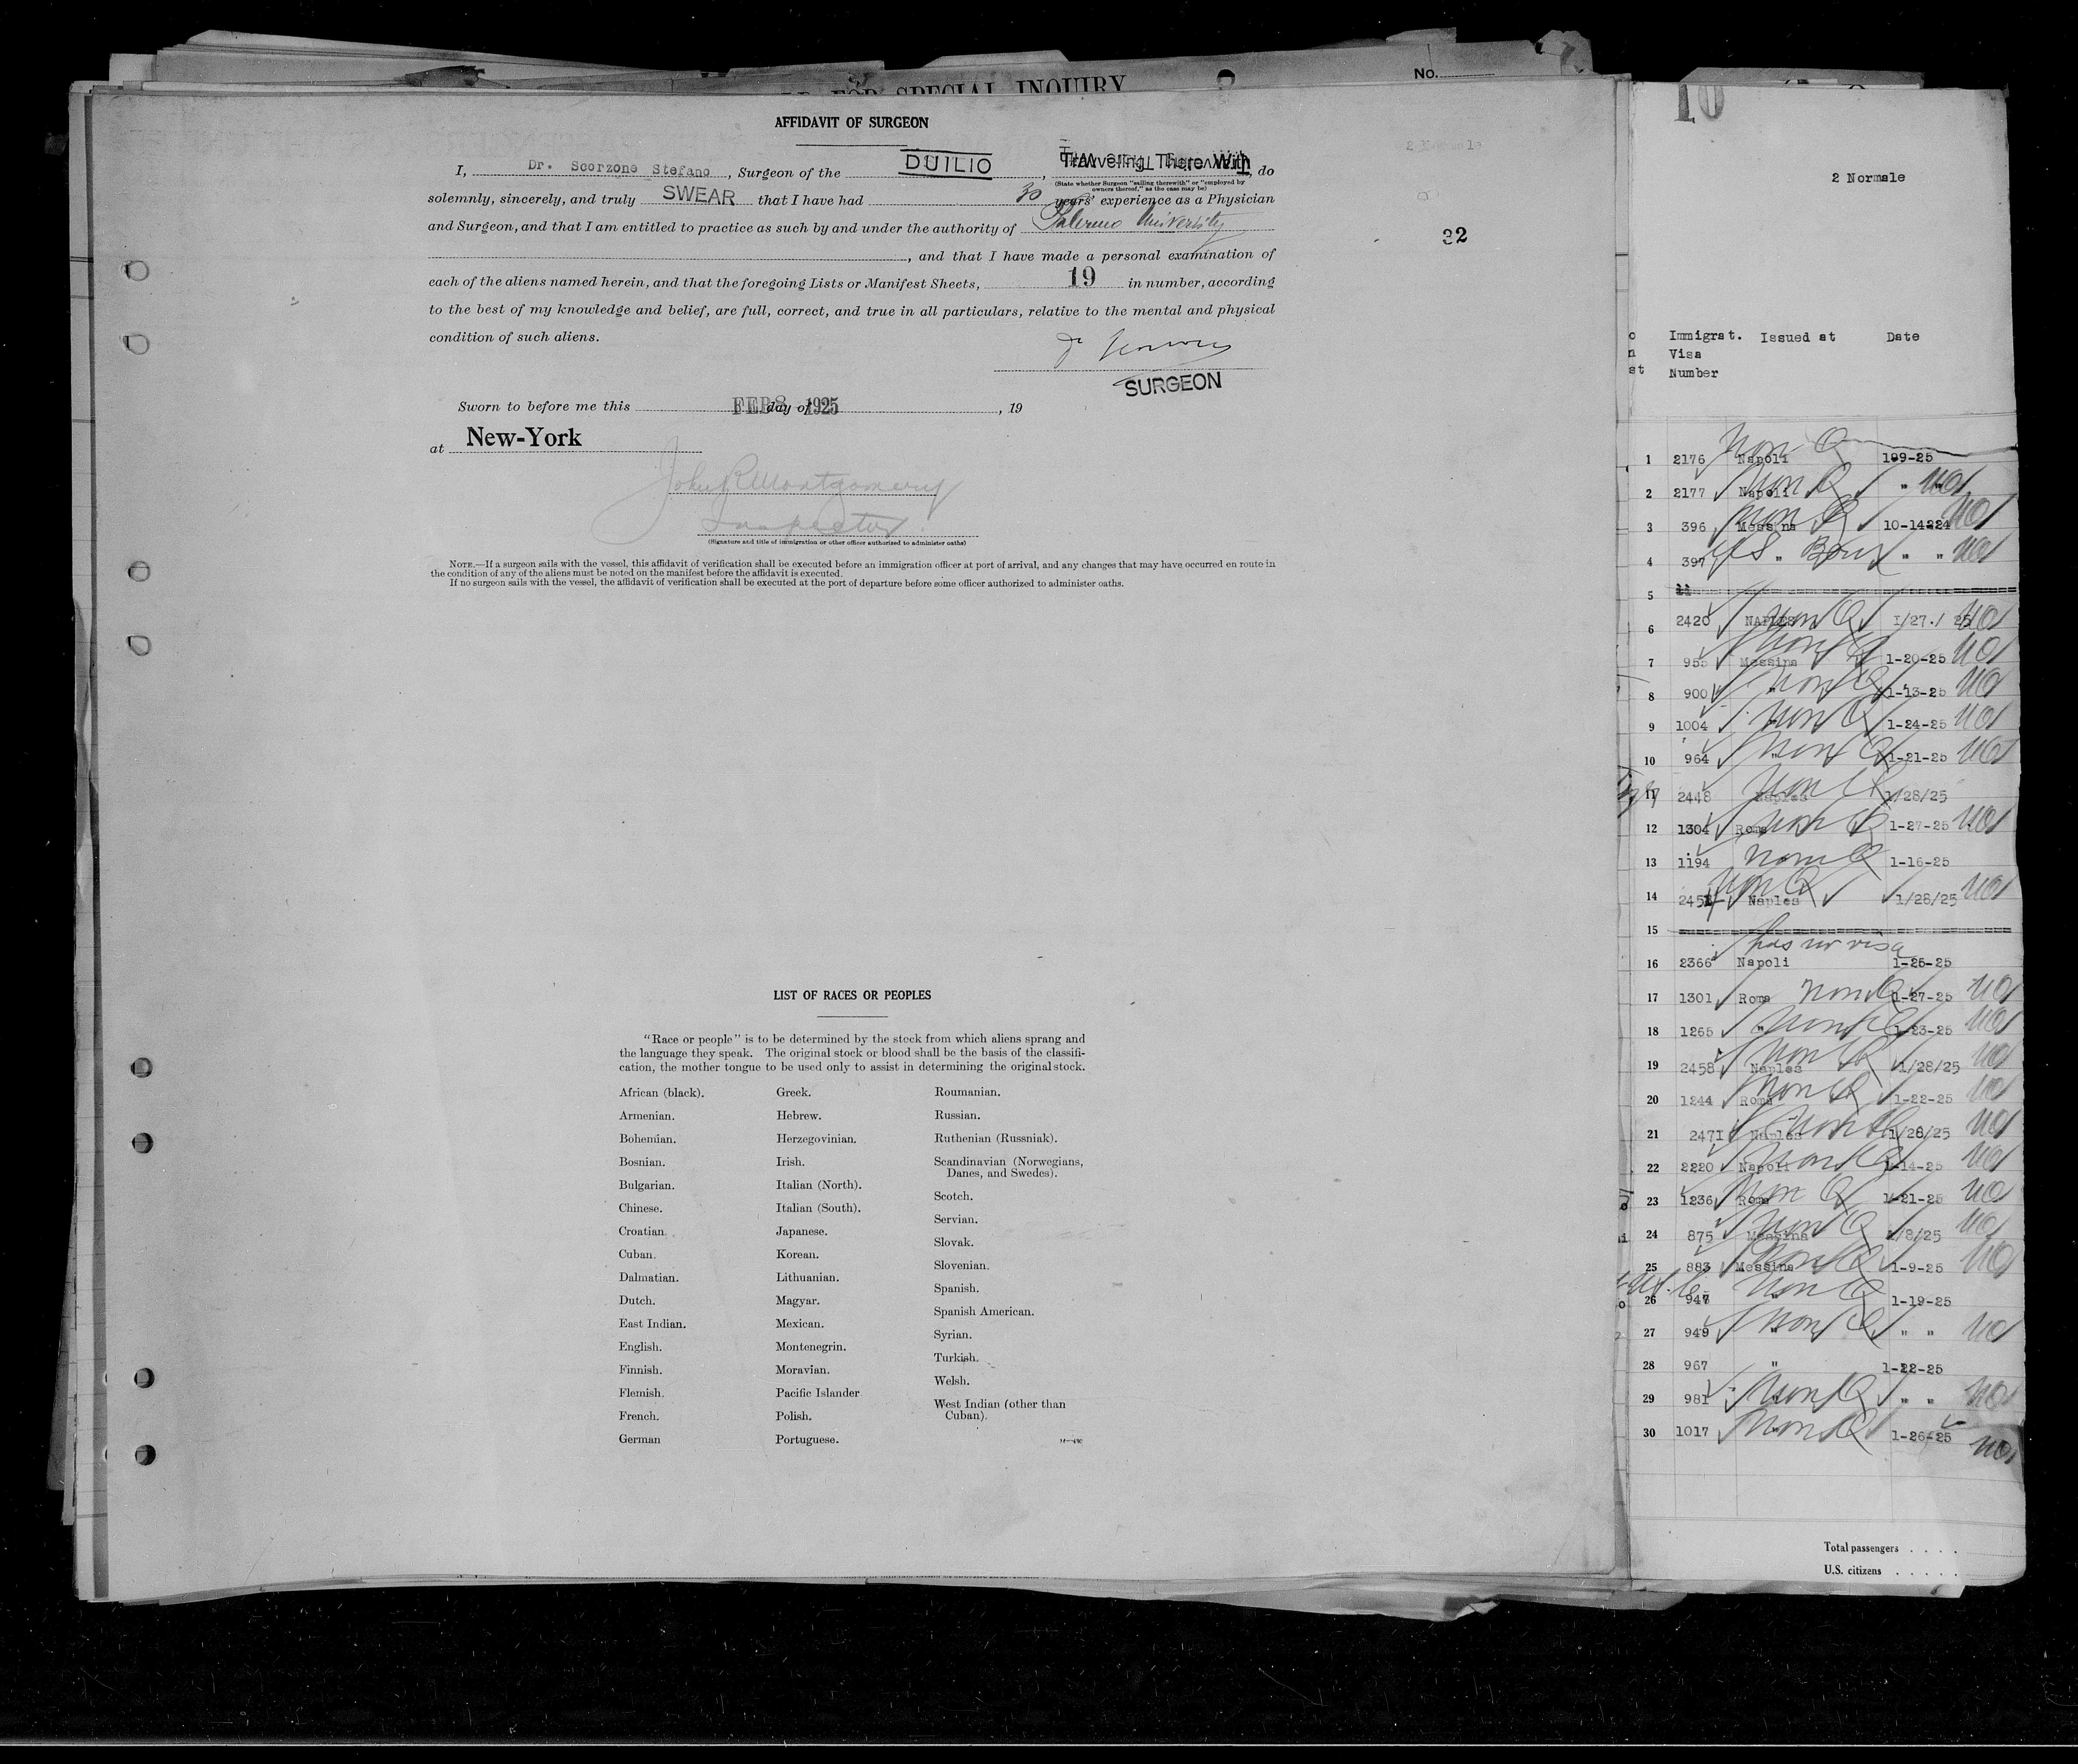 FOR SPECIAL INQUIRY
No.
AFFIDAVIT OF SURGEON
I, Dr. Scorzone Stefano, Surgeon of the DUILIO, Travelling There With, do
(State whether Surgeon "sailing therewith" or "employed by
owners thereof," as the case may be)
solemnly, sincerely, and truly SWEAR that I have had 30 years' experience as a Physician
and Surgeon, and that I am entitled to practice as such by and under the authority of Palermo University
, and that I have made a personal examination of
each of the aliens named herein, and that the foregoing Lists or Manifest Sheets, 19 in number, according
to the best of my knowledge and belief, are full, correct, and true in all particulars, relative to the mental and physical
condition of such aliens.
SURGEON
Sworn to before me this FEB 8 1925 day of , 19
at New-York
John R Montgomery
Inspector
(Signature and title of immigration or other officer authorized to administer oaths)
NOTE.—If a surgeon sails with the vessel, this affidavit of verification shall be executed before an immigration officer at port of arrival, and any changes that may have occurred en route in
the condition of any of the aliens must be noted on the manifest before the affidavit is executed.
If no surgeon sails with the vessel, the affidavit of verification shall be executed at the port of departure before some officer authorized to administer oaths.
2 Normale
32
LIST OF RACES OR PEOPLES
"Race or people" is to be determined by the stock from which aliens sprang and
the language they speak. The original stock or blood shall be the basis of the classifi-
cation, the mother tongue to be used only to assist in determining the original stock.
African (black).
Armenian.
Bohemian.
Bosnian.
Bulgarian.
Chinese.
Croatian.
Cuban.
Dalmatian.
Dutch.
East Indian.
English.
Finnish.
Flemish.
French.
German
Greek.
Hebrew.
Herzegovinian.
Irish.
Italian (North).
Italian (South).
Japanese.
Korean.
Lithuanian.
Magyar.
Mexican.
Montenegrin.
Moravian.
Pacific Islander
Polish.
Portuguese.
Roumanian.
Russian.
Ruthenian (Russniak).
Scandinavian (Norwegians,
Danes, and Swedes).
Scotch.
Servian.
Slovak.
Slovenian.
Spanish.
Spanish American.
Syrian.
Turkish.
Welsh.
West Indian (other than
Cuban).
10
2 Normale
Immigrat. Issued at Date
Visa
Number
1 2176 Napoli Non Q 109-25
2 2177 Napoli Non Q " "
3 396 Messina Non Q 10-14-24
4 397 " US Born " "
5
6 2420 NAPLES Non Q 1/27/25
7 955 Messina Non Q 1-20-25
8 900 " Non Q 1-13-25
9 1004 " Non Q 1-24-25
10 964 " Non Q 1-21-25
11 2448 Naples Non Q 1/28/25
12 1304 Roma Non Q 1-27-25
13 1194 Non Q 1-16-25
14 Naples Non Q 1/28/25
15
has no visa
16 2366 Napoli 1-25-25
17 1301 Roma Non Q 1-27-25
18 1265 " Non Q 1-23-25
19 2458 Naples Non Q 1/28/25
20 1244 Roma Non Q 1-22-25
21 2471 Naples Non Q 1/28/25
22 2220 Napoli Non Q 1-14-25
23 1236 Roma Non Q 1-21-25
24 875 Messina Non Q 1/8/25
25 883 Messina Non Q 1-9-25
26 947 Non Q 1-19-25
27 949 " Non Q " "
28 967 " 1-22-25
29 981 " Non Q " "
30 1017 " Non Q 1-26-25
Total passengers . . . .
U.S. citizens . . . . .